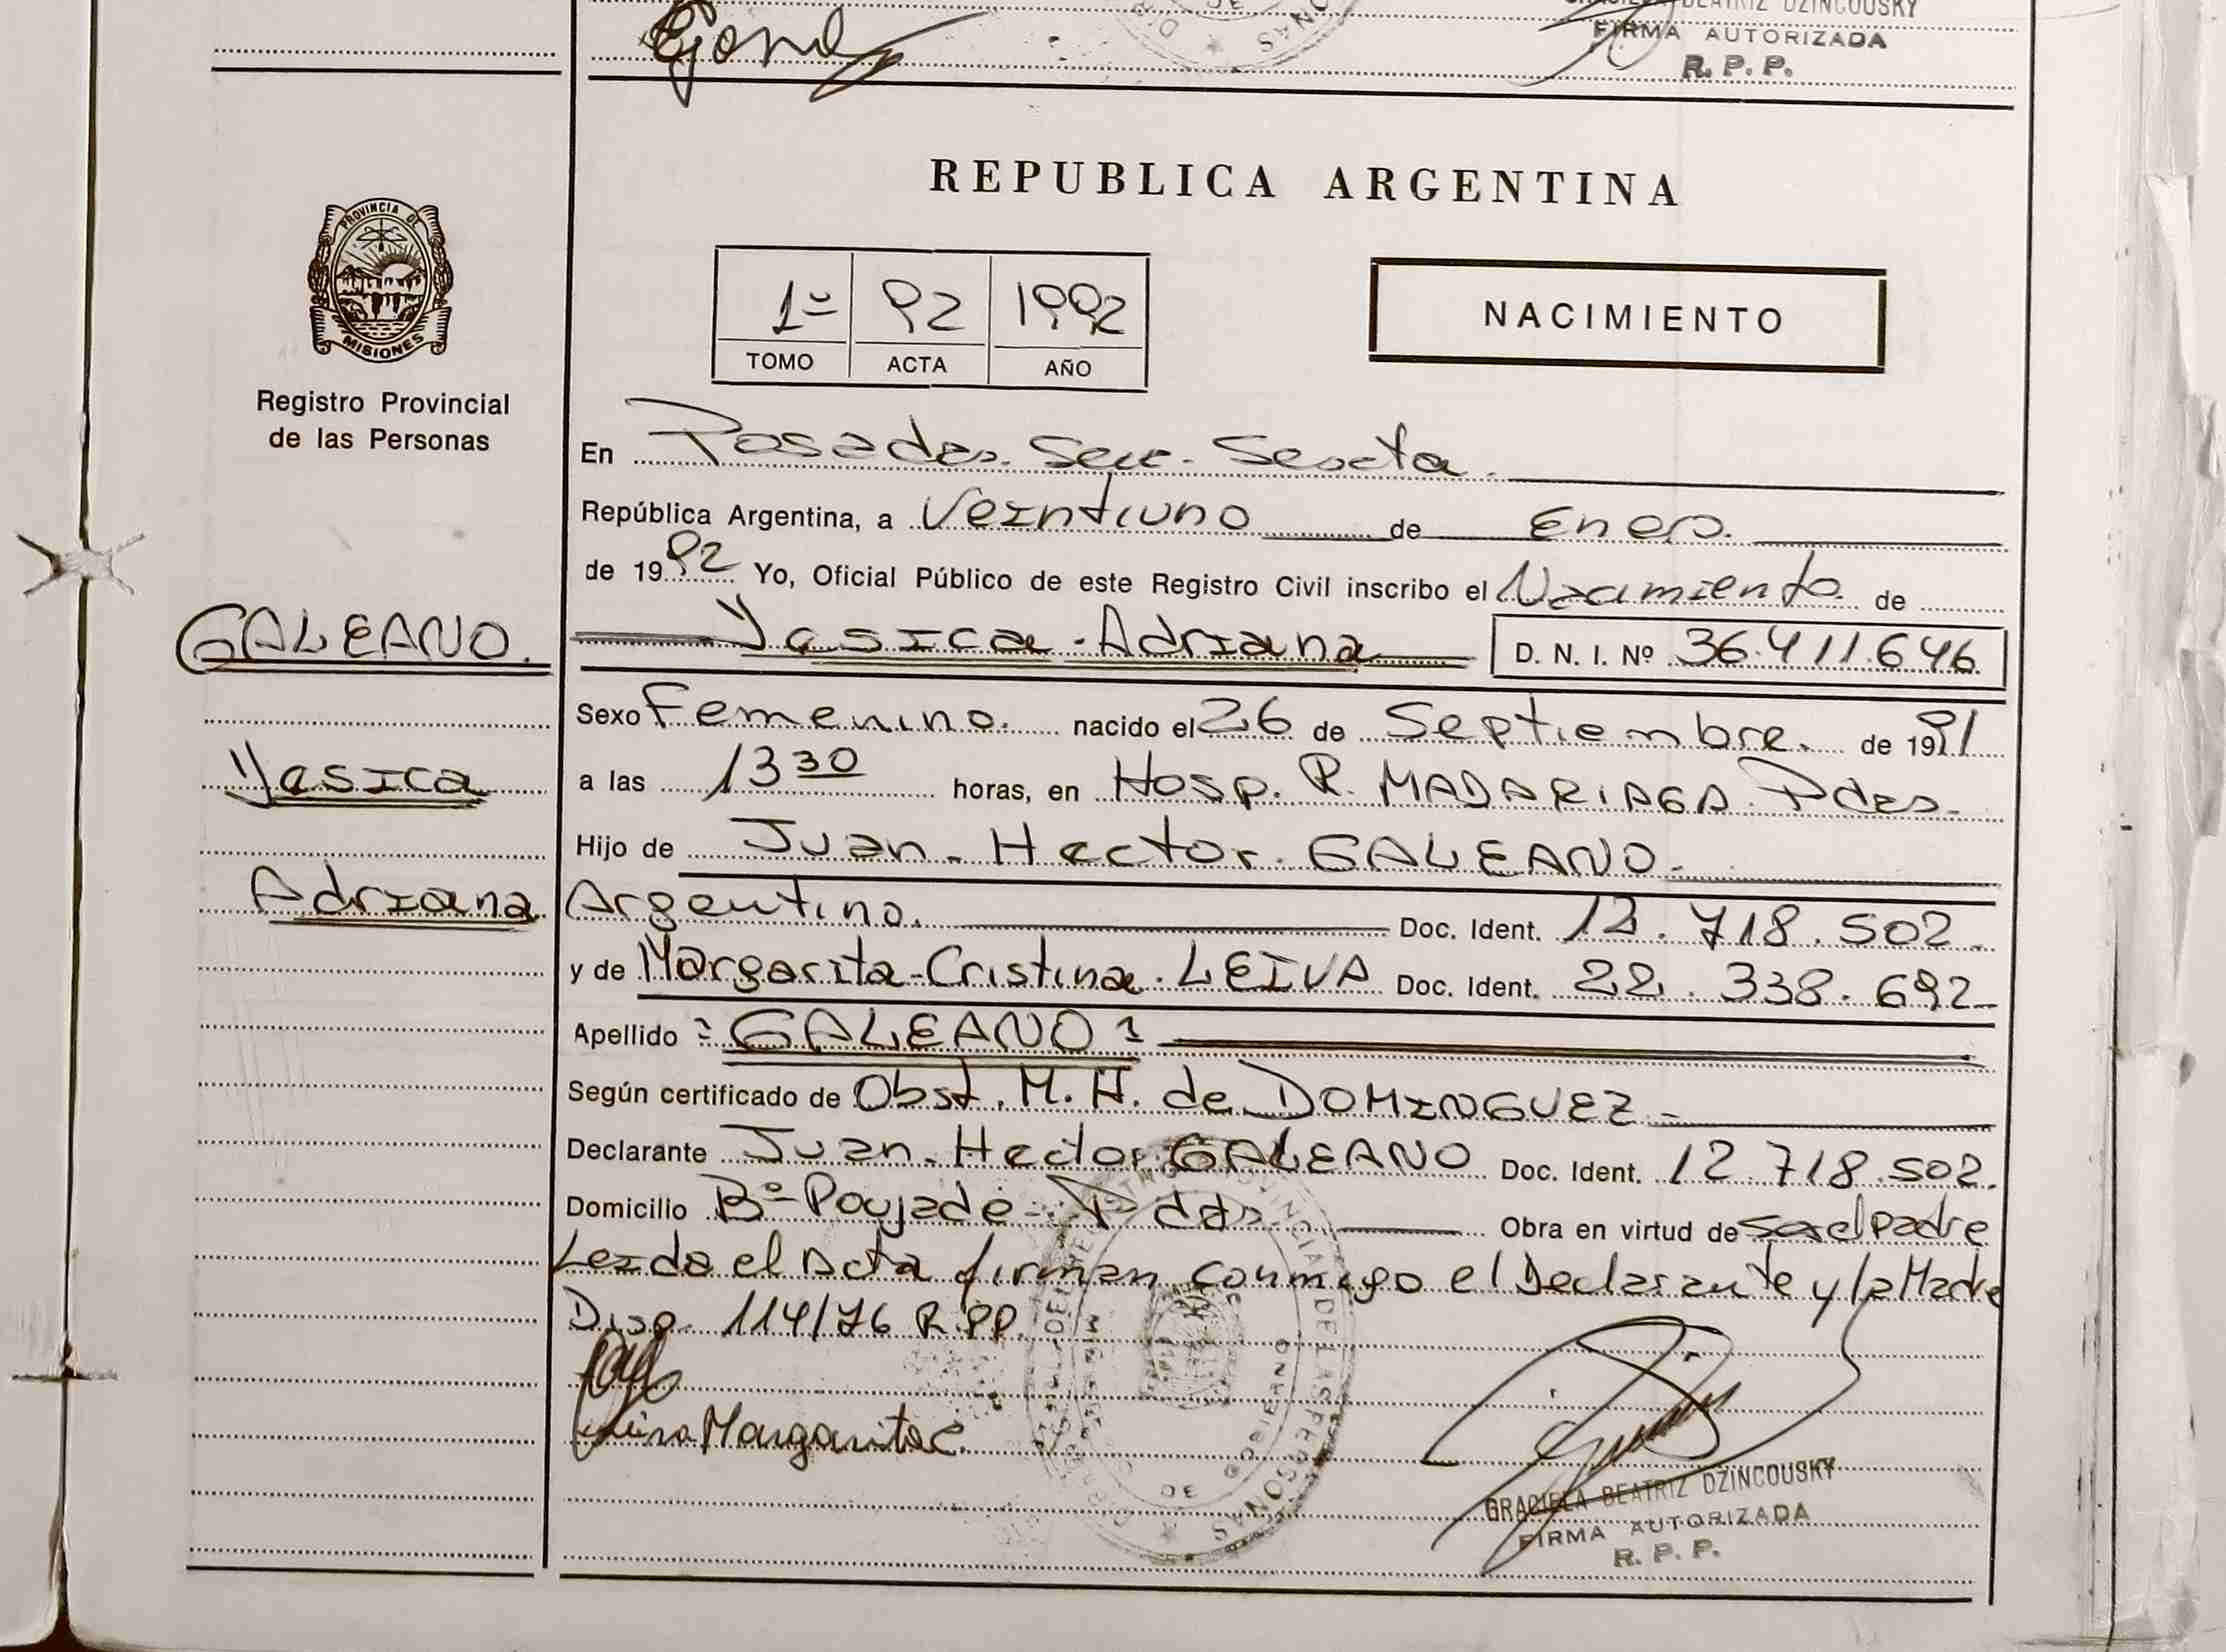 BEATRIZ DZINCOUSKY
FIRMA AUTORIZADA
R. P. P.
REPUBLICA ARGENTINA
PROVINCIA DE
MISIONES
Registro Provincial
de las Personas
1º 92 1992
TOMO ACTA AÑO
NACIMIENTO
En Posadas. Secc. Sexta.
República Argentina, a Veintiuno de Enero.
de 1992 Yo, Oficial Público de este Registro Civil inscribo el Nacimiento de
GALEANO.
Yasica Adriana
Yasica - Adriana D. N. I. Nº 36.411.646
Sexo Femenino. nacido el 26 de Septiembre. de 1991
a las 13 30 horas, en Hosp. R. MADARIAGA Pdas.
Hijo de Juan - Hector GALEANO.
Argentino. Doc. Ident. 12.718.502.
y de Margarita - Cristina. LEIVA Doc. Ident. 22.338.692
Apellido = GALEANO =
Según certificado de Obst. M. H. de DOMINGUEZ -
Declarante Juan - Hector GALEANO Doc. Ident. 12 718.502.
Domicilio Bº Poujade - Pdas. Obra en virtud de ser el padre
Leida el Acta firman conmigo el Declarante y la Madre
Disp. 114/76 R.PP.
Leiva Margarita C.
GRACIELA BEATRIZ DZINCOUSKY
FIRMA AUTORIZADA
R. P. P.